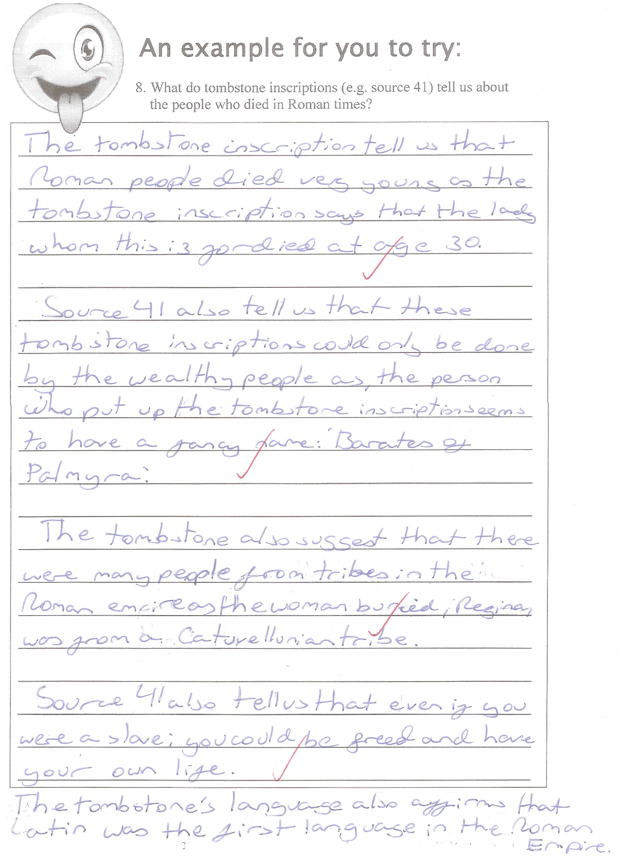 An example for you to try:
8. What do tombstone inscriptions (e.g. source 41) tell us about
the people who died in Roman times?
The tombstone inscription tell us that
Roman people died very young as the
tombstone inscription says that the lady
whom this is for died at age 30.
Source 41 also tell us that these
tombstone inscriptions could only be done
by the wealthy people as, the person
who put up the tombstone inscription seems
to have a fancy name: 'Barates of
Palmyra'.
The tombstone also suggest that there
were many people from tribes in the
Roman empire as the woman buried, Regina,
was from a Catuvellunian tribe.
Source 41 also tell us that even if you
were a slave; you could be freed and have
your own life.
The tombstone's language also affirms that
Latin was the first language in the Roman
Empire.